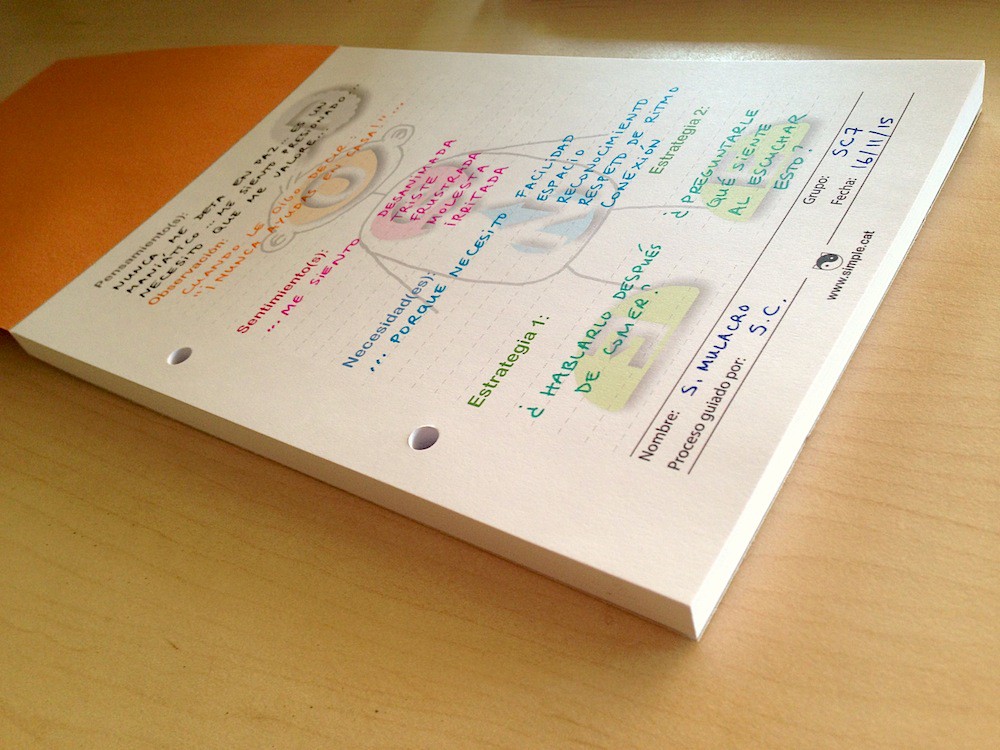 Pensamiento(s):
NUNCA ME DEJA EN PAZ... ES UN
MANIÁTICO... ME SIENTO PRESIONADO...
NECESITO QUE ME VALORE...
Observación:
CUANDO LE OIGO DECIR:
"¡NUNCA AYUDAS EN CASA!"...
Sentimiento(s):
... ME SIENTO
DESANIMADA
TRISTE
FRUSTRADA
MOLESTA
IRRITADA
Necesidad(es):
... PORQUE NECESITO
FACILIDAD
ESPACIO
RECONOCIMIENTO
RESPETO DE RITMO
CONEXIÓN
Estrategia 1:
¿HABLARLO DESPUÉS
DE COMER?
Estrategia 2:
¿PREGUNTARLE
QUÉ SIENTE
AL ESCUCHAR
ESTO?
Nombre: S. MULACRO Grupo: SC7
Proceso guiado por: S.C. Fecha: 16/11/15
www.simple.cat